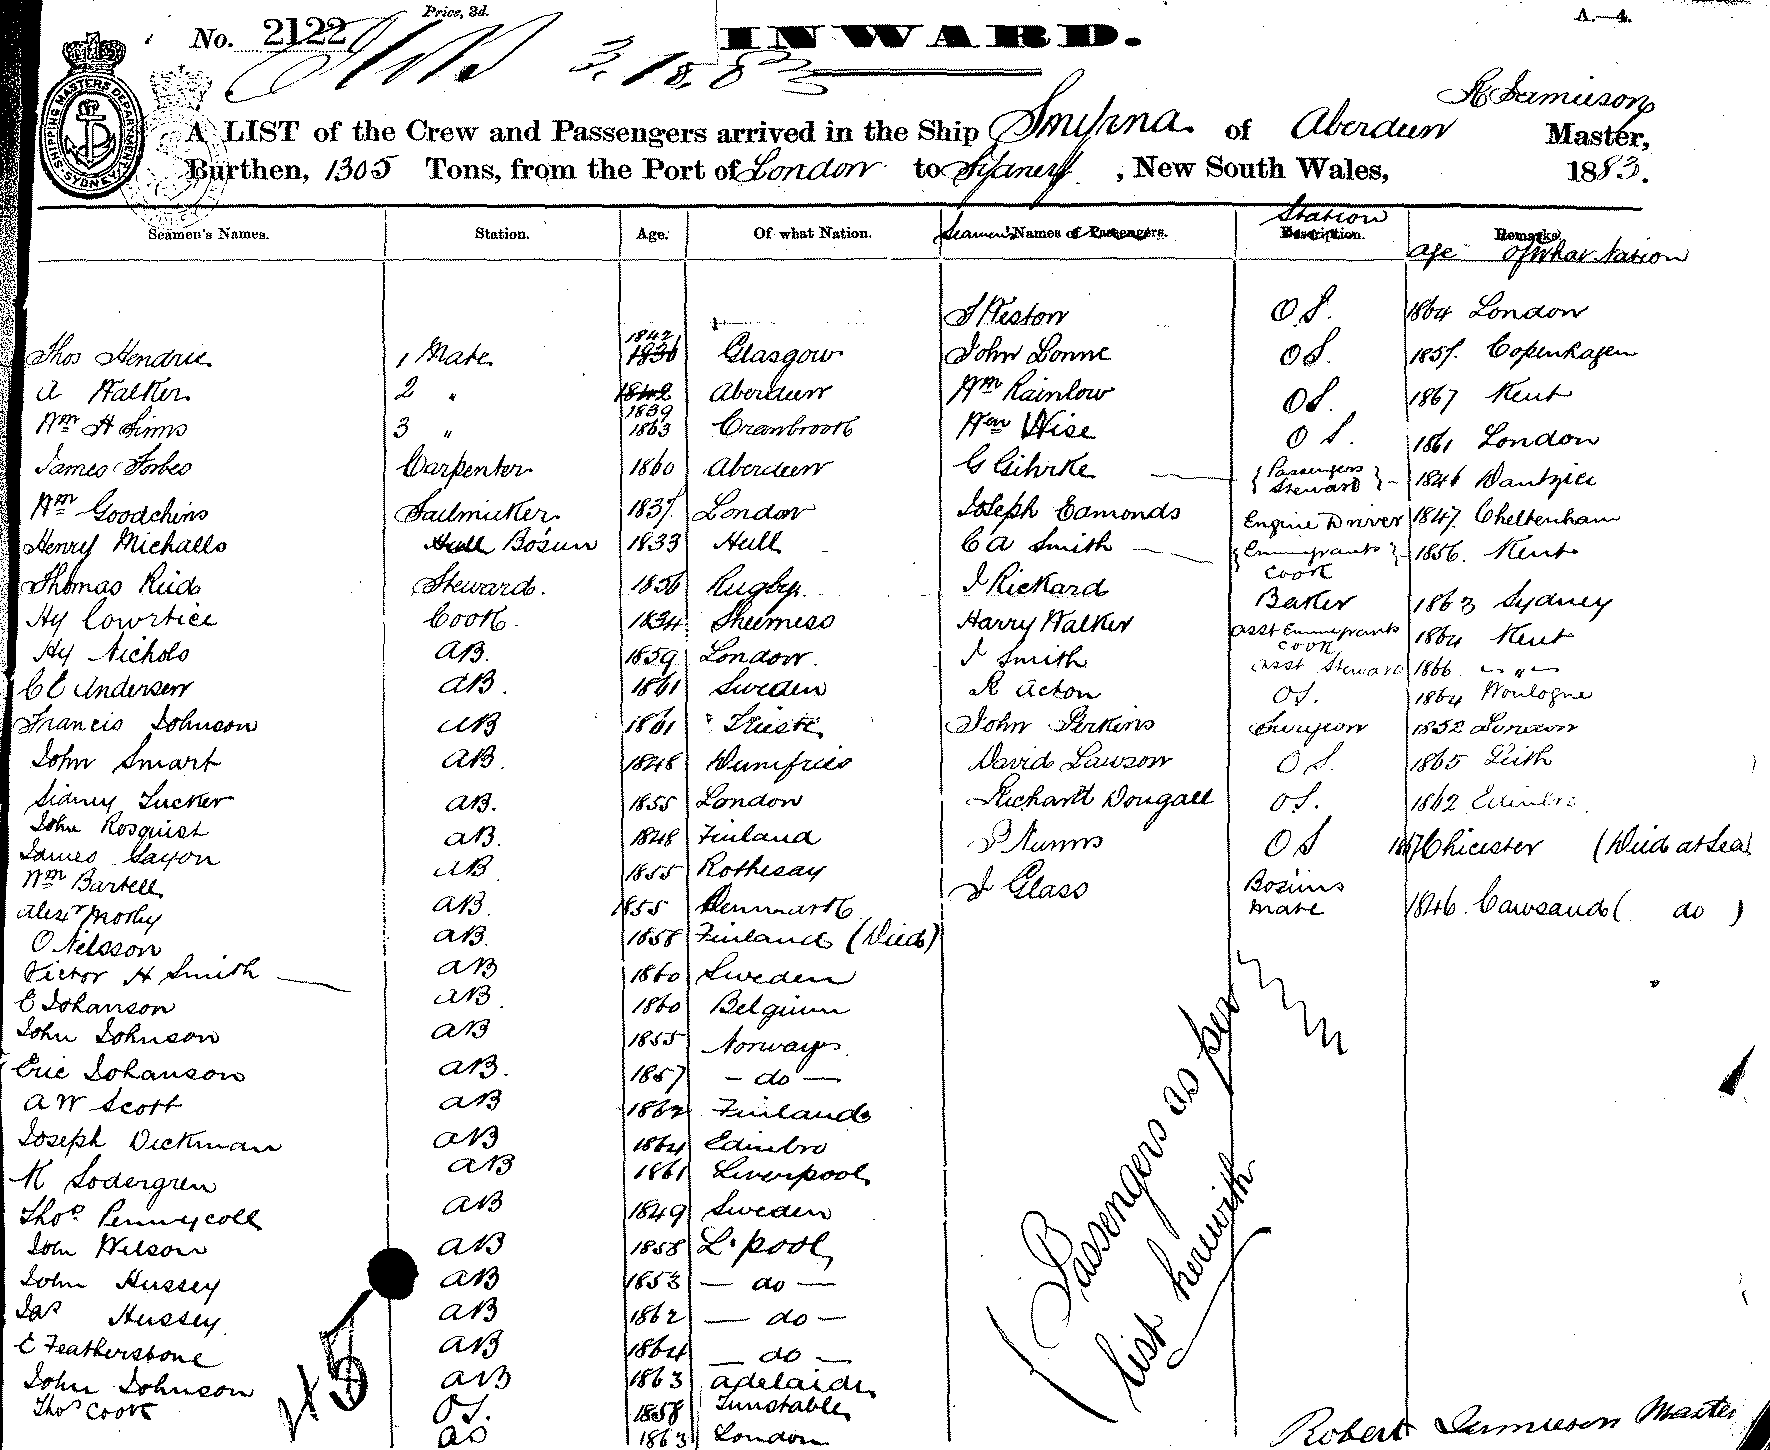 Price, 3d.
A.—4.
No. 2122
INWARD.
3.18.83
R Jamieson
A LIST of the Crew and Passengers arrived in the Ship Smyrna of Aberdeen Master,
Burthen, 1305 Tons, from the Port of London to Sydney, New South Wales, 1883.
SHIPPING MASTERS DEPARTMENT SYDNEY
Seamen's Names. Station. Age. Of what Nation. Seamen's Names of Passengers. Station Description. Remarks.
Age Of What Nation
J Weston O.S. 1864 London
Thos Hendrie 1 Mate 1842 1836 Glasgow John Lonne O.S. 1857 Copenhagen
A Walker 2 " 1842 1839 Aberdeen Wm Rainlow O.S. 1867 Kent
Wm H Simms 3 " 1863 Cranbrook Wm Wise O S. 1861 London
James Forbes Carpenter 1860 Aberdeen G Gihrke { Passengers Steward } 1846 Dantzic
Wm Goodchins Sailmaker 1837 London Joseph Edmonds Engine Driver 1847 Cheltenham
Henry Michalls Hull Bosun 1833 Hull C A Smith { Emmigrants Cook } 1856 Kent
Thomas Reid Steward. 1856 Rugby. J Rickard Baker 1863 Sydney
Hy Cowrtice Cook. 1834 Sheerness Harry Walker asst Emmigrants Cook 1864 Kent
Hy Nichols AB. 1859 London. J Smith asst Steward 1866 "
C E Andersen AB. 1861 Sweden R Acton OS. 1864 Boulogne
Francis Johnson AB 1861 Trieste John Perkins Surgeon 1852 London
John Smart AB. 1848 Dumfries David Lawson O S. 1865 Leith
Sidney Tucker AB. 1855 London Richard Dougall OS. 1862 Edinbro
John Rosquist AB. 1848 Finland P Nunns O S 1867 Chicester (Died at Sea)
James Saxon AB 1855 Rothesay J Glass Bosuns Mate 1846 Cawsand ( do )
Wm Bartell AB. 1855 Denmark
Alexr Morby AB. 1858 Finland (Died)
O Nelsson AB 1860 Sweden
Victor H Smith AB. 1860 Belgium
E Johanson AB 1855 Norway.
John Johnson AB. 1857 — do —
Eric Johanson AB 1862 Finland
A W Scott AB 1864 Edinbro
Joseph Dickman AB 1861 Liverpool
K Sodergren AB 1849 Sweden
Thos Pennycoll AB 1858 L.pool
John Wilson AB 1853 — do —
John Hussey AB 1862 — do —
Jas Hussey AB 1864 — do —
E Featherstone AB 1863 Adelaide
John Johnson OS. 1858 Dunstable
Thos Cook 1863 London
45
(Passengers as per
list herewith
Robert Jamieson Master